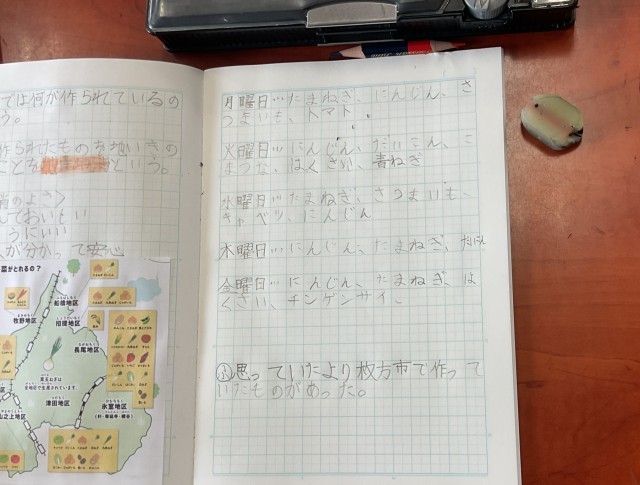 では何が作られているの
う。
作られたものを地いきの
ことを という。
のよさ〉
んでおいしい
うにいい
人が分かって安心
菜がとれるの？
船橋地区
牧野地区
招提地区
長尾地区
津田地区
氷室地区
山之上地区
月曜日…たまねぎ、にんじん、さ
つまいも、トマト
火曜日…にんじん、だいこん、こ
まつな、はくさい、青ねぎ
水曜日…たまねぎ、さつまいも、
キャベツ、にんじん
木曜日…にんじん、たまねぎ、だいこん
金曜日…にんじん、たまねぎ、は
くさい、チンゲンサイ、
ふ思っていたより枚方市で作って
いたものがあった。